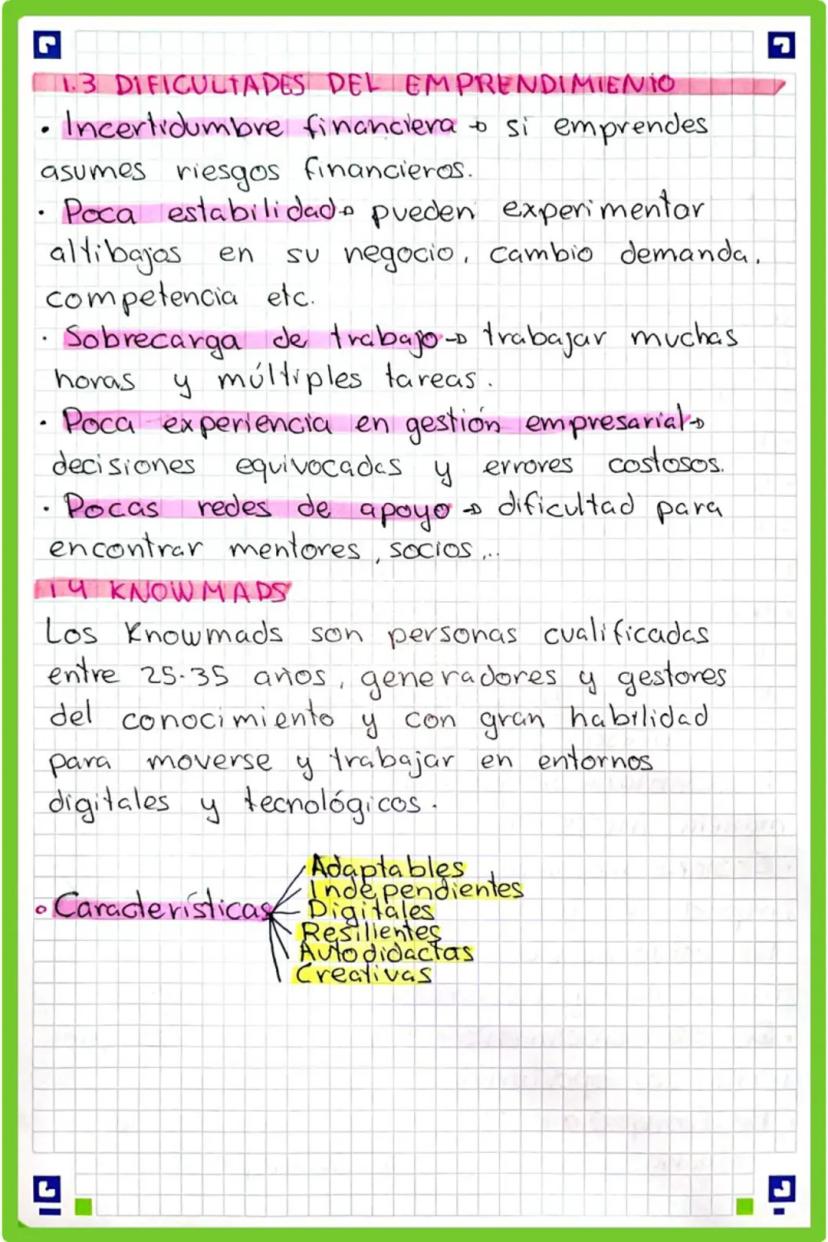 1.3 DIFICULTADES DEL EMPRENDIMIENTO
· Incertidumbre financiera → si emprendes
asumes riesgos financieros.
· Poca estabilidad → pueden experimentar
altibajos en su negocio, cambio demanda,
competencia etc.
· Sobrecarga de trabajo → trabajar muchas
horas y múltiples tareas.
· Poca experiencia en gestión empresarial →
decisiones equivocadas y errores costosos.
· Pocas redes de apoyo → dificultad para
encontrar mentores, socios...
1.4 KNOWMADS
Los Knowmads son personas cualificadas
entre 25-35 años, generadores y gestores
del conocimiento y con gran habilidad
para moverse y trabajar en entornos
digitales y tecnológicos.
Adaptables
Independientes
· Características
Digitales
Resilientes
Autodidactas
Creativas